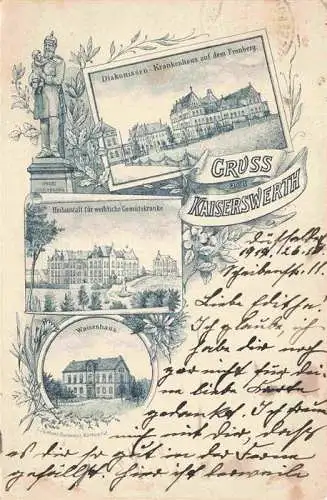 Diakonissen-Krankenhaus auf dem Fronberg.
GRUSS
aus
KAISERSWERTH
Heilanstalt für weibliche Gemütskranke
Waisenhaus
Düsseldorf
Liebe Edithe.
Ich glaube, ich
habe dir noch
gar nicht für dei
ne liebe Karte
gedankt. Ich freue
mich mit dir, dass
es dir so gut in der Ferne
gefällt. Hier ist derweile